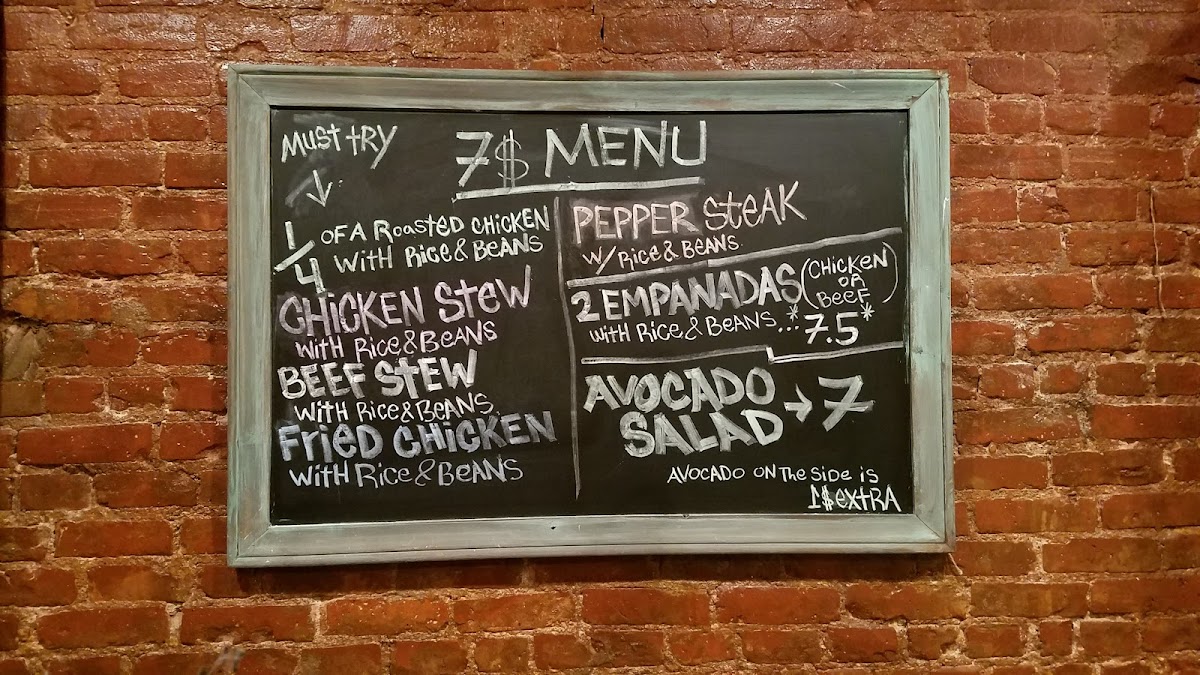 MUST TRY
7$ MENU
1/4 OF A ROASTED CHICKEN
WITH RICE & BEANS
CHICKEN STEW
WITH RICE & BEANS
BEEF STEW
WITH RICE & BEANS.
FRIED CHICKEN
WITH RICE & BEANS
PEPPER STEAK
W/ RICE & BEANS.
2 EMPANADAS (CHICKEN
OR
BEEF)
WITH RICE & BEANS...*7.5*
AVOCADO
SALAD → 7
AVOCADO ON THE SIDE IS
1$ EXTRA